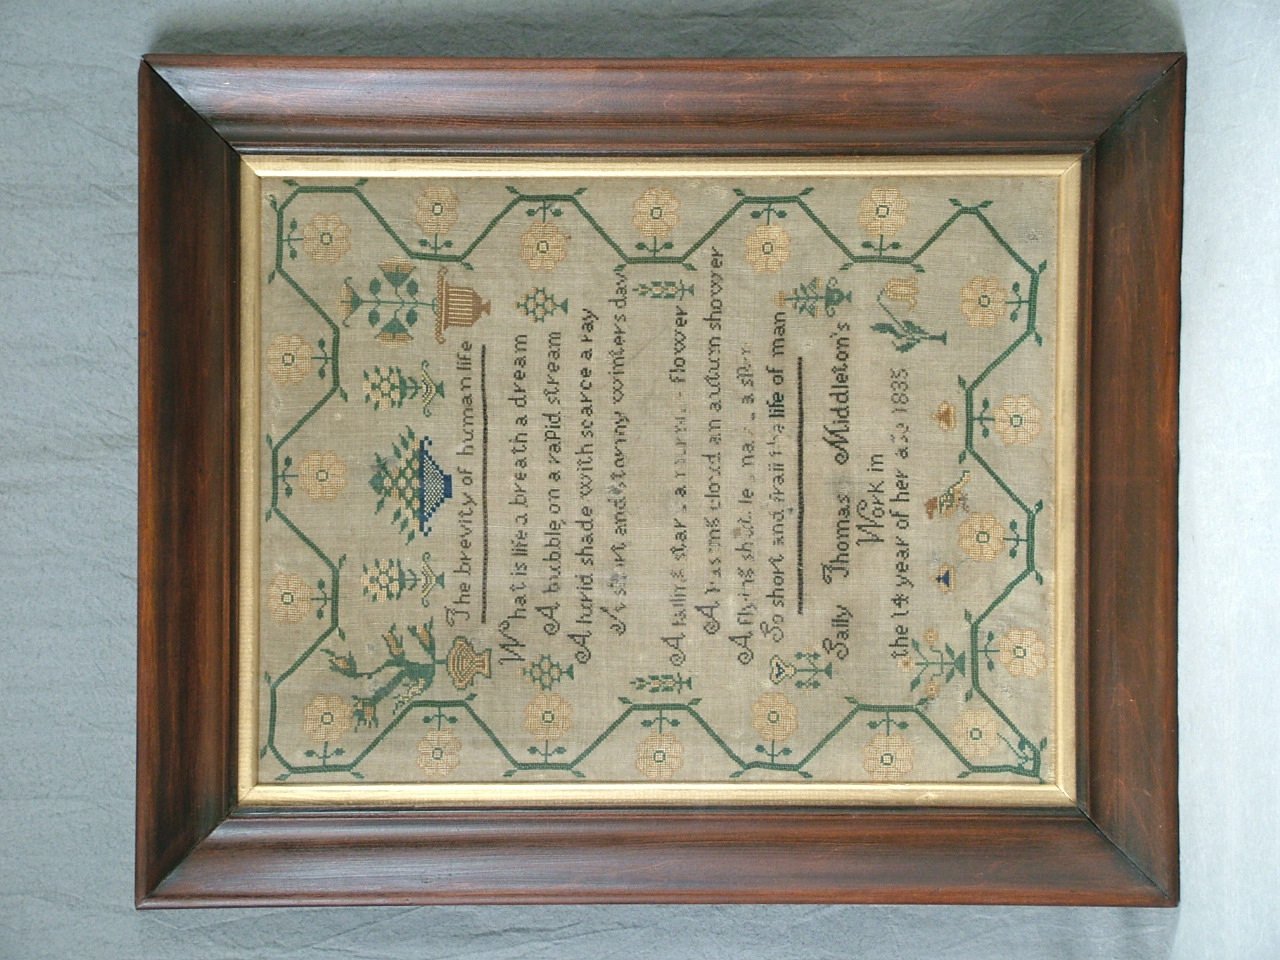 The brevity of human life
What is life a breath a dream
A bubble, on a rapid stream
A lurid shade with scarce a ray
A short and stormy winters day
A falling star a flower
A passing cloud an autumn shower
A flying shuttle a
So short and frail the life of man
Sally Thomas Middleton's
Work in
the 14 year of her age 1835